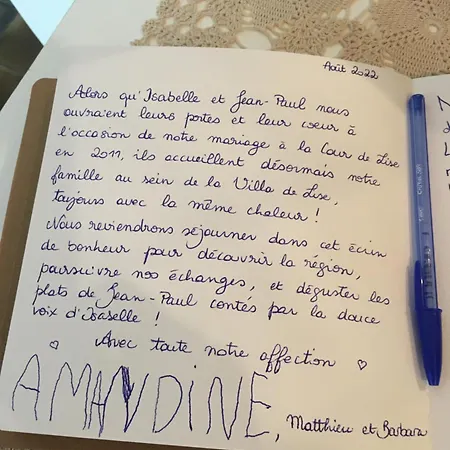 Août 2022
Alors qu'Isabelle et Jean-Paul nous
ouvraient leurs portes et leur coeur à
l'occasion de notre mariage à la Cour de Lise
en 2011, ils accueillent désormais notre
famille au sein de la Villa de Lise,
toujours avec la même chaleur !
Nous reviendrons séjourner dans cet écrin
de bonheur pour découvrir la région,
poursuivre nos échanges, et déguster les
plats de Jean-Paul contés par la douce
voix d'Isabelle !
Avec toute notre affection
AMANDINE, Matthieu et Barbara